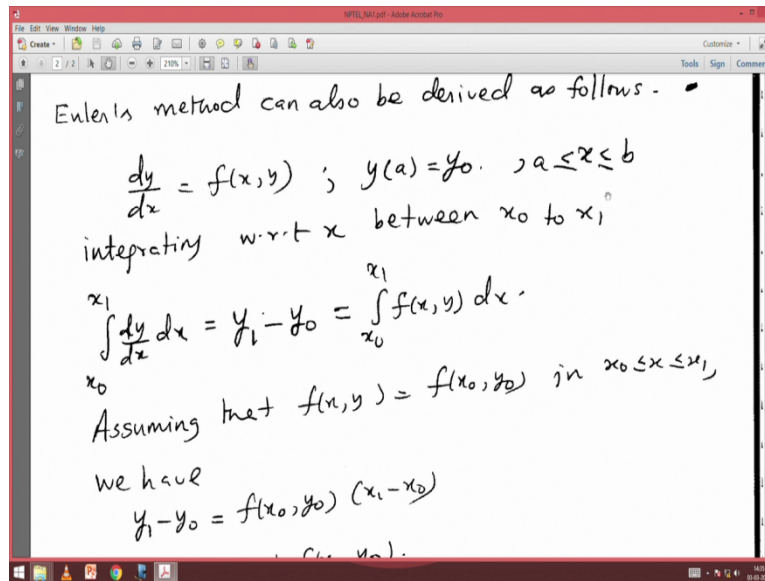 NPTEL_NA7.pdf - Adobe Acrobat Pro
File Edit View Window Help
Create
Customize
2 / 2
210%
Tools Sign Commen
Euler's method can also be derived as follows.
dy/dx = f(x,y) ; y(a) = y0. , a ≤ x ≤ b
integrating w.r.t x between x0 to x1
∫_{x0}^{x1} dy/dx dx = y1 - y0 = ∫_{x0}^{x1} f(x,y) dx.
Assuming that f(x,y) = f(x0,y0) in x0 ≤ x ≤ x1,
we have
y1 - y0 = f(x0,y0) (x1-x0)